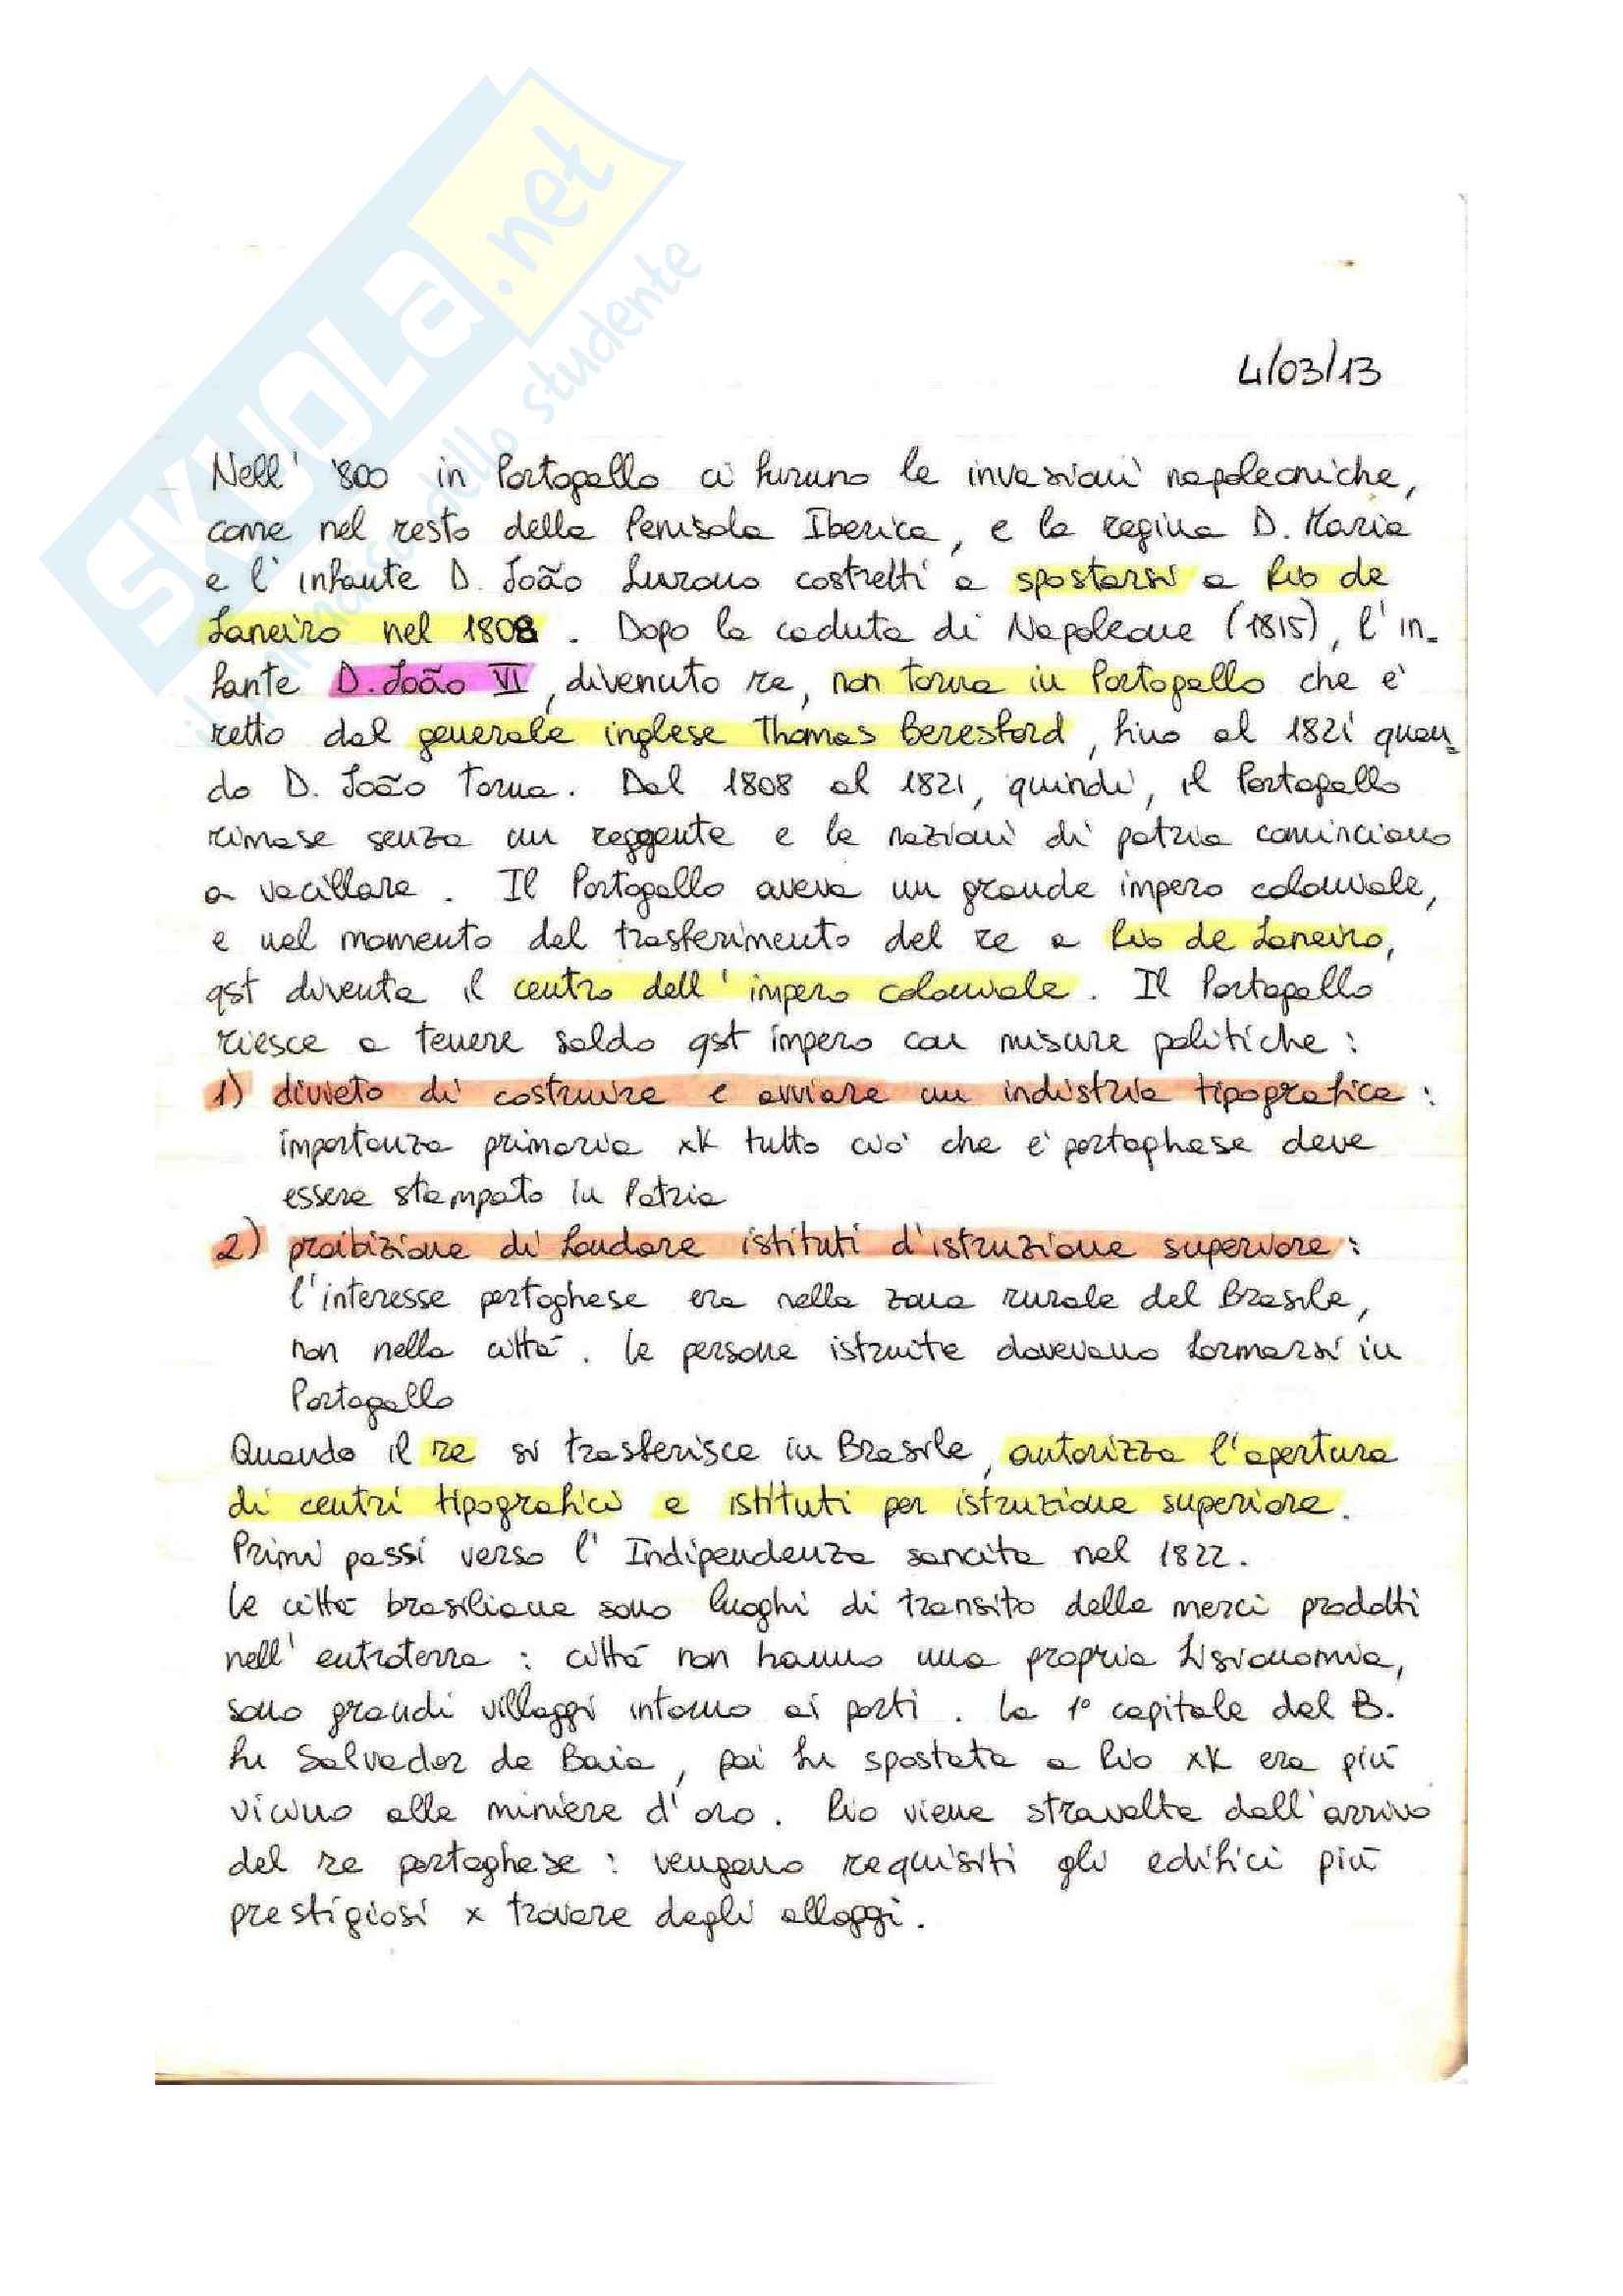 SKUOLA.net
il paradiso dello studente
4/03/13
Nell' '800 in Portogallo ci furuno le invasioni napoleoniche,
come nel resto della Penisola Iberica, e la regina D. Maria
e l' infante D. João furono costretti a spostarsi a Rio de
Janeiro nel 1808. Dopo la caduta di Napoleone (1815), l' in-
fante D. João VI, divenuto re, non torna in Portogallo che è
retto dal generale inglese Thomas Beresford, fino al 1821 quan-
do D. João torna. Dal 1808 al 1821, quindi, il Portogallo
rimase senza un reggente e le nazioni di patria cominciano
a vacillare. Il Portogallo aveva un grande impero coloniale,
e nel momento del trasferimento del re a Rio de Janeiro,
qst diventa il centro dell' impero coloniale. Il Portogallo
riesce a tenere saldo qst impero con misure politiche:
1) divieto di costruire e avviare un industria tipografica:
importanza primaria xk tutto ciò che è portoghese deve
essere stampato in Patria
2) proibizione di fondare istituti d'istruzione superiore:
l'interesse portoghese era nella zona rurale del Brasile,
non nella città. Le persone istruite dovevano formarsi in
Portogallo
Quando il re si trasferisce in Brasile, autorizza l'apertura
di centri tipografici e istituti per istruzione superiore.
Primi passi verso l' Indipendenza sancita nel 1822.
Le città brasiliane sono luoghi di transito delle merci prodotti
nell' entroterra: città non hanno una propria fisionomia,
sono grandi villaggi intorno ai porti. La 1° capitale del B.
fu Salvador de Baia, poi fu spostata a Rio xk era più
vicino alle miniere d'oro. Rio viene stravolta dall'arrivo
del re portoghese: vengono requisiti gli edifici più
prestigiosi x trovare degli alloggi.